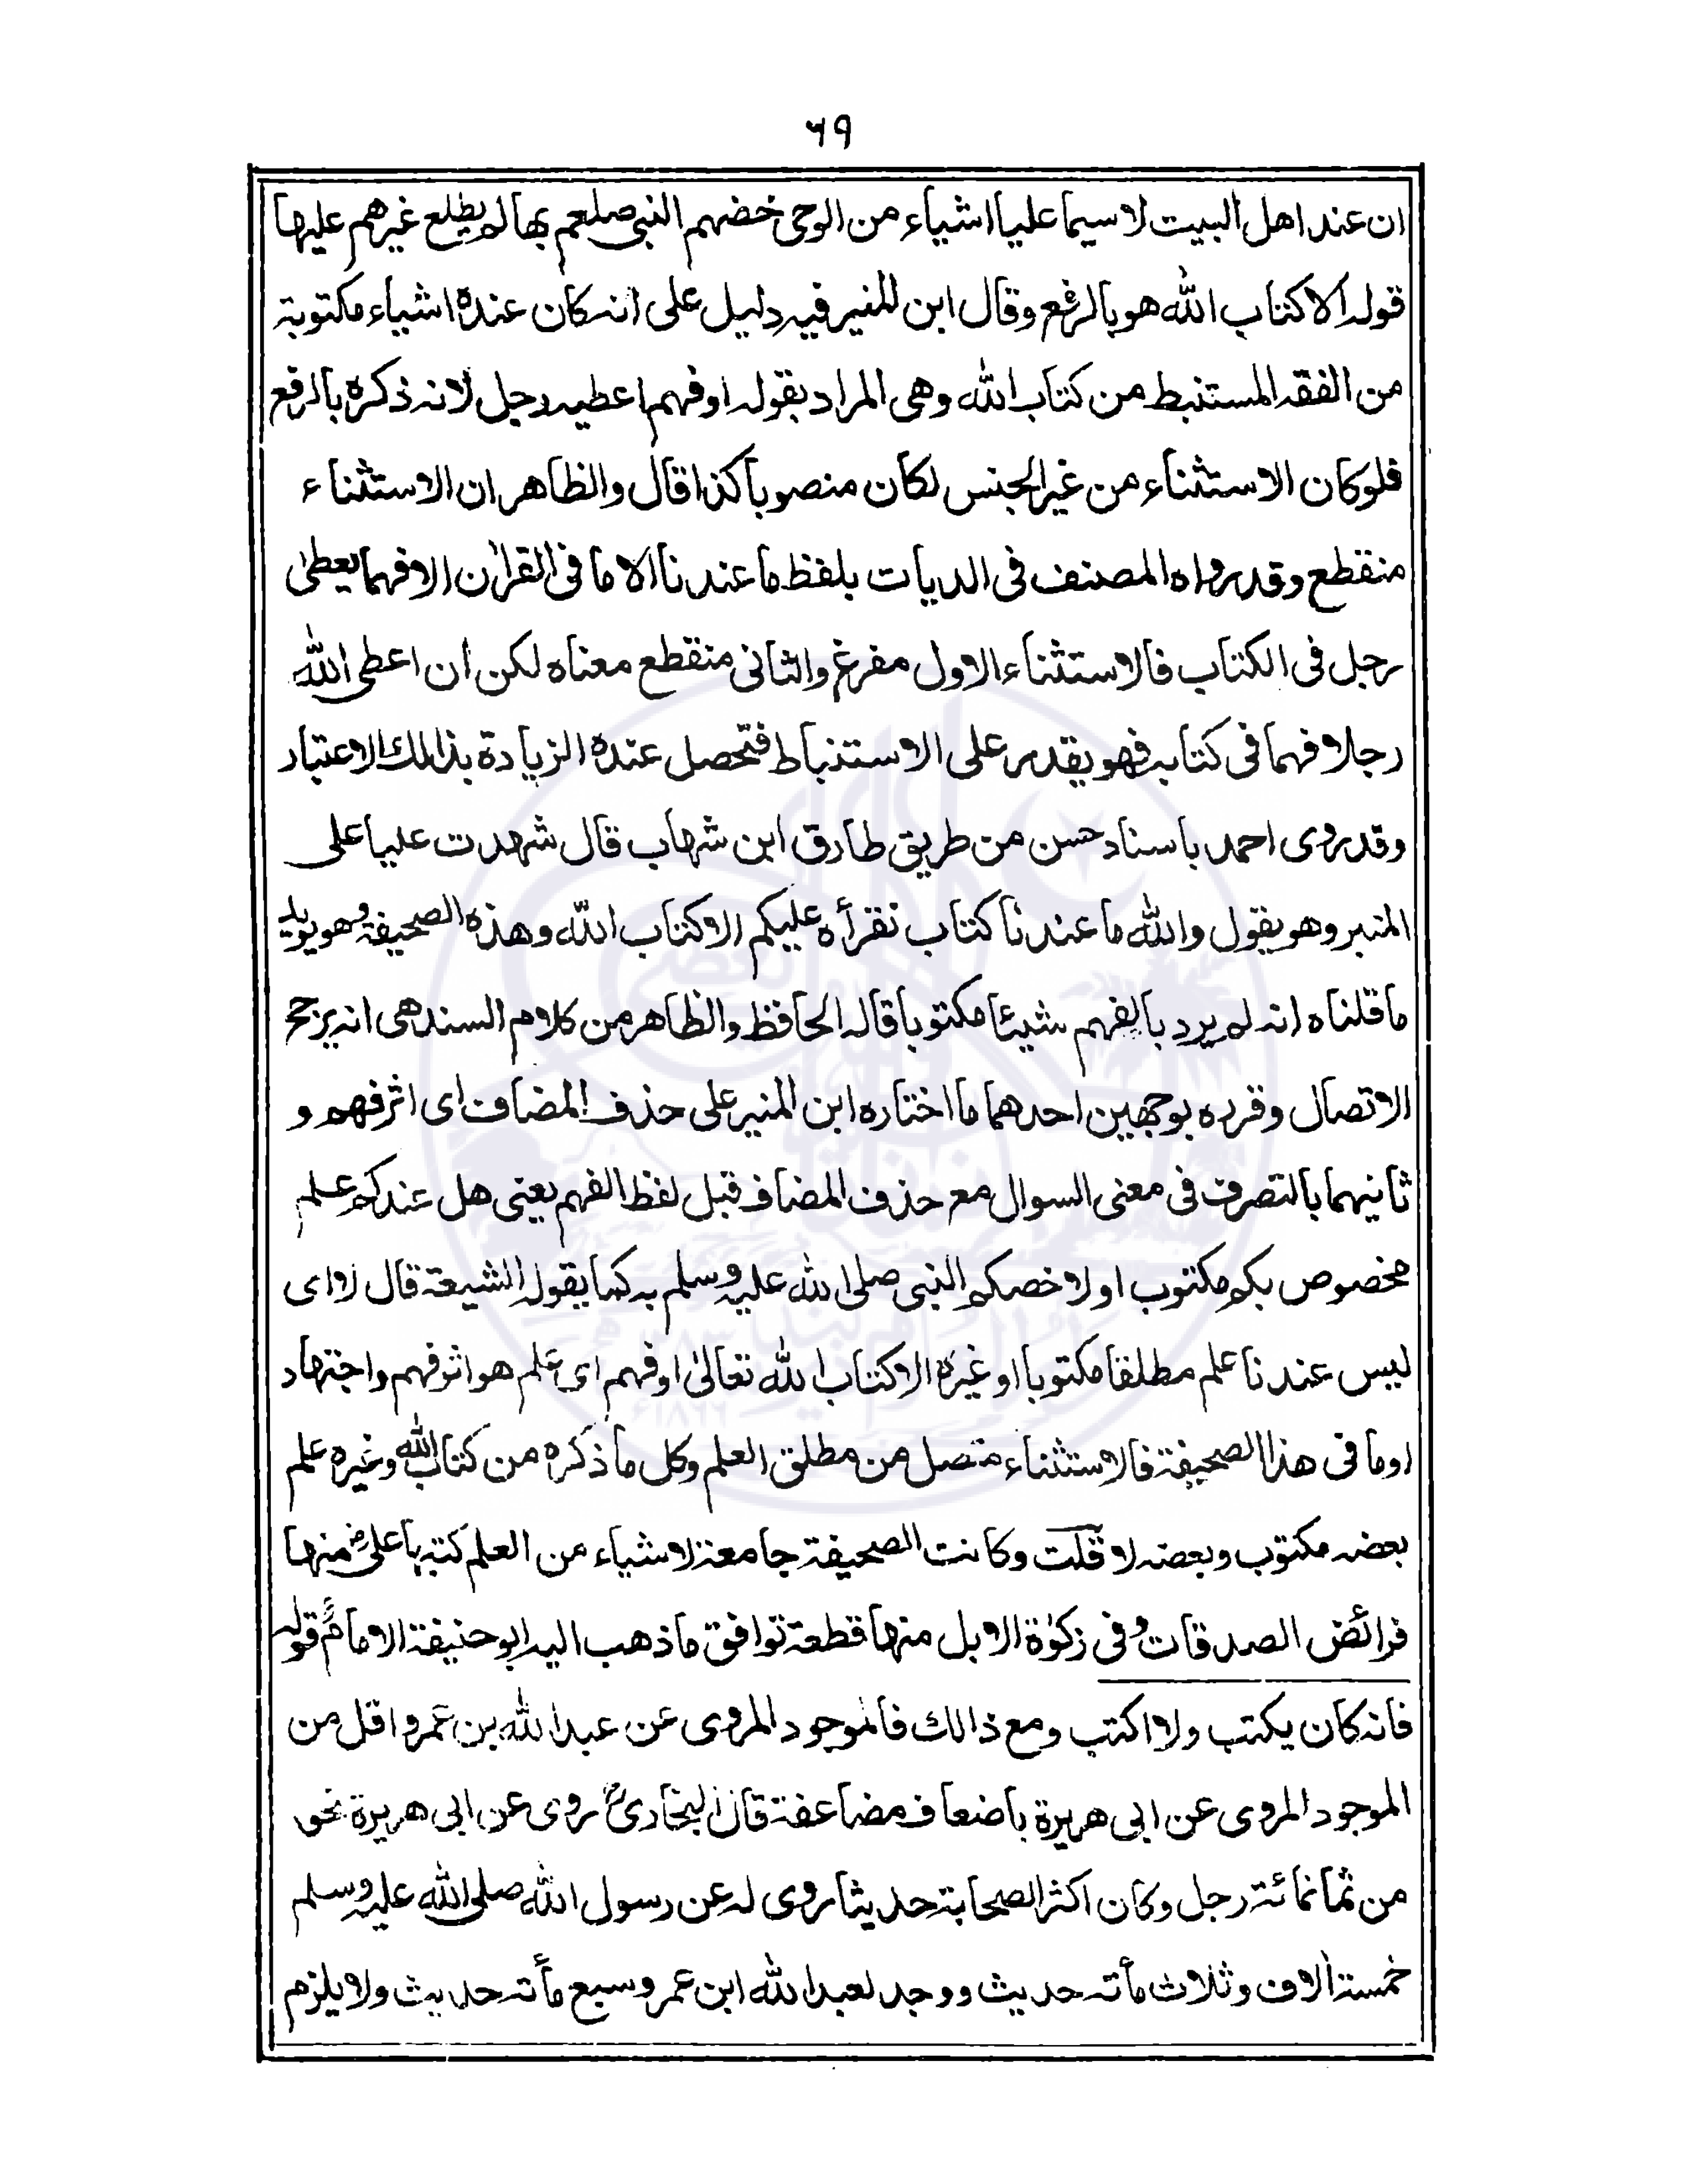 ٦٩
ان عند اهل البيت لا سيما عليا اشياء من الوحى خضهم النبى صلعم بها لم يطلع غيرهم عليها
قوله الا كتاب الله هو بالرفع وقال ابن المنير فيه دليل على انه كان عنده اشياء مكتوبة
من الفقه المستنبط من كتاب الله وهى المراد بقوله او فهم اعطيه رجل لانه ذكره بالرفع
فلو كان الاستثناء من غير الجنس لكان منصوبا كذا قال والظاهر ان الاستثناء
منقطع وقد رواه المصنف فى الديات بلفظ ما عندنا الا ما فى القران الا فهما يعطى
رجل فى الكتاب فالاستثناء الاول مفرغ والثانى منقطع معناه لكن ان اعطى الله
رجلا فهما فى كتابه فهو يقدر على الاستنباط فتحصل عنده الزيادة بذالك الاعتبار
وقد روى احمد باسناد حسن من طريق طارق ابن شهاب قال شهدت عليا على
المنبر وهو يقول والله ما عندنا كتاب نقرأه عليكم الا كتاب الله وهذه الصحيفة وهو يويد
ما قلناه انه لم يرد بالفهم شيئا مكتوبا قاله الحافظ والظاهر من كلام السندهى انه يرجح
الاتصال وقرره بوجهين احدهما ما اختاره ابن المنير على حذف المضاف اى اثر فهم و
ثانيهما بالتصرف فى معنى السوال مع حذف المضاف قبل لفظ الفهم يعنى هل عندكم علم
مخصوص بكم مكتوب اولا خصكم النبى صلى الله عليه وسلم به كما يقوله الشيعة قال لا اى
ليس عندنا علم مطلقا مكتوبا او غيره الا كتاب الله تعالى او فهم اى علم هو اثر فهم واجتهاد
او ما فى هذا الصحيفة فالاستثناء متصل من مطلق العلم وكل ما ذكره من كتاب الله وغيره علم
بعضه مكتوب وبعضه لا قلت وكانت الصحيفة جامعة لاشياء من العلم كتبها على رض منها
فرائض الصدقات وفى زكوة الابل منها قطعة توافق ما ذهب اليه ابو حنيفة الامام قوله
فانه كان يكتب ولا اكتب ومع ذالك فالموجود المروى عن عبد الله بن عمرو اقل من
الموجود المروى عن ابى هريرة باضعاف مضاعفة قال البخارى روى عن ابى هريرة نحو
من ثمانمائة رجل وكان اكثر الصحابة حديثا روى له عن رسول الله صلى الله عليه وسلم
خمسة الاف وثلاث مأته حديث ووجد لعبد الله ابن عمرو سبع مأته حديث ولا يلزم